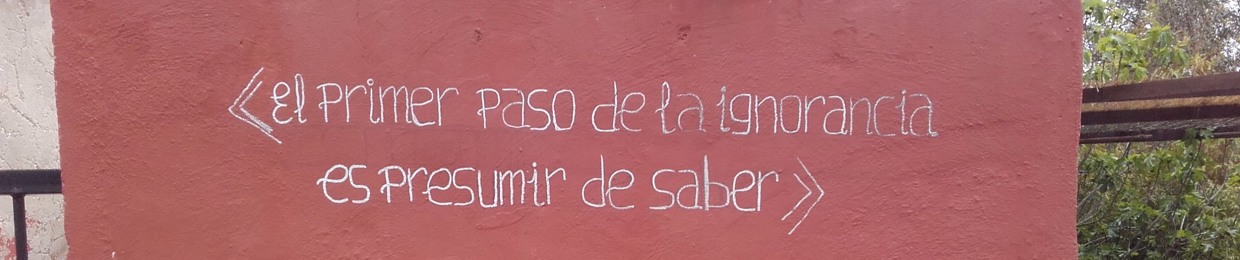 «El primer paso de la ignorancia
es presumir de saber»